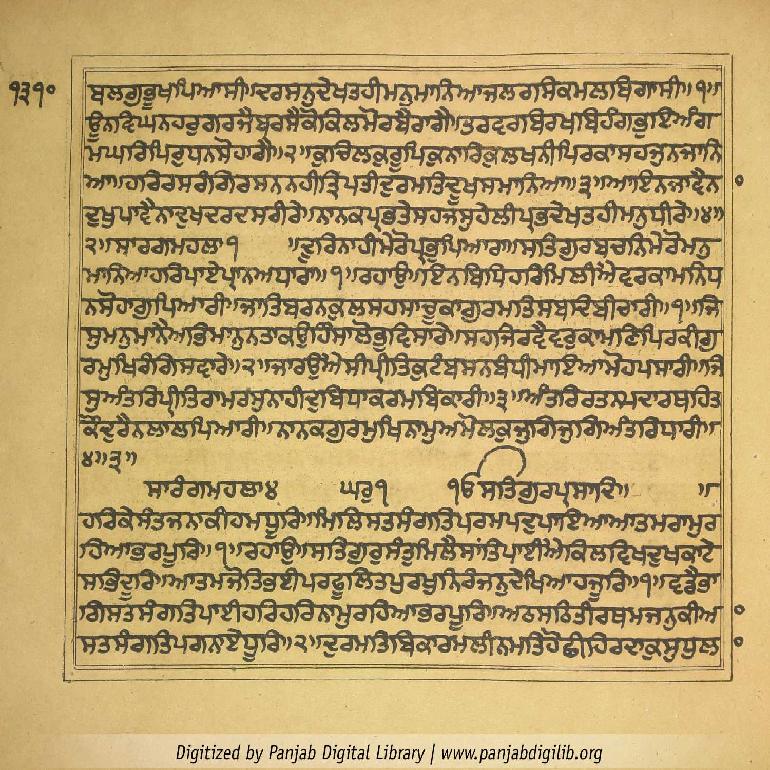 ੧੩੧੦
ਬਲਗੁਭੂਖਪਿਆਸੀ॥ਦਰਸਨੁਦੇਖਤਹੀਮਨੁਮਾਨਿਆਜਲਰਸਿਕਮਲਬਿਗਾਸੀ॥੧॥
ਊਨਵਿਘਨਹਰੁਗਰਜੈਬਰਸੈਕੋਕਿਲਮੋਰਬੈਰਾਗੈ॥ਤਰਵਰਬਿਰਖਬਿਹੰਗਭੁਇਅੰਗ
ਮਘਰਿਪਿਰੁਧਨਸੋਹਾਗੈ॥੨॥ਕੁਚਿਲਕੁਰੂਪਿਕੁਨਾਰਿਕੁਲਖਨੀਪਿਰਕਾਸਹਜੁਨਜਾਨਿ
ਆ॥ਹਰਿਰਸਰੰਗਿਰਸਨਨਹੀਤ੍ਰਿਪਤੀਦੁਰਮਤਿਦੂਖਸਮਾਨਿਆ॥੩॥ਆਇਨਜਾਵੈਨ
ਦੁਖੁਪਾਵੈਨਾਦੁਖਦਰਦਸਰੀਰੇ॥ਨਾਨਕਪ੍ਰਭਤੇਸਹਜਸੁਹੇਲੀਪ੍ਰਭਦੇਖਤਹੀਮਨੁਧੀਰੇ॥੪॥
੨॥ਸਾਰਗਮਹਲਾ੧ ॥ਦੂਰਿਨਾਹੀਮੇਰੋਪ੍ਰਭੁਪਿਆਰਾ॥ਸਤਿਗੁਰਬਚਨਿਮੇਰੋਮਨੁ
ਮਾਨਿਆਹਰਿਪਾਏਪ੍ਰਾਨਅਧਾਰਾ॥੧॥ਰਹਾਉ॥ਇਨਬਿਧਿਹਰਿਮਿਲੀਐਵਰਕਾਮਨਿਧ
ਨਸੋਹਾਗੁਪਿਆਰੀ॥ਜਾਤਿਬਰਨਕੁਲਸਹਸਾਚੂਕਾਗੁਰਮਤਿਸਬਦਿਬੀਚਾਰੀ॥੧॥ਜਿ
ਸੁਮਨੁਮਾਨੈਅਭਿਮਾਨੁਨਤਾਕਉਹਿੰਸਾਲੋਭੁਵਿਸਾਰੇ॥ਸਹਜਿਰਵੈਵਰੁਕਾਮਣਿਪਿਰਕੀਗੁ
ਰਮੁਖਿਰੰਗਿਸਵਾਰੇ॥੨॥ਜਾਰਉਐਸੀਪ੍ਰੀਤਿਕੁਟੰਬਸਨਬੰਧੀਮਾਇਆਮੋਹਪਸਾਰੀ॥ਜਿ
ਸੁਅੰਤਰਿਪ੍ਰੀਤਿਰਾਮਰਸੁਨਾਹੀਦੁਬਿਧਾਕਰਮਬਿਕਾਰੀ॥੩॥ਅੰਤਰਿਰਤਨਪਦਾਰਥਹਿਤ
ਕੌਦੁਰੈਨਲਾਲਪਿਆਰੀ॥ਨਾਨਕਗੁਰਮੁਖਿਨਾਮੁਅਮੋਲਕੁਜੁਗਿਜੁਗਿਅੰਤਰਿਧਾਰੀ॥
੪॥੩॥
ਸਾਰੰਗਮਹਲਾ੪ ਘਰੁ੧ ੴਸਤਿਗੁਰਪ੍ਰਸਾਦਿ॥ ॥
ਹਰਿਕੇਸੰਤਜਨਾਕੀਹਮਧੂਰਿ॥ਮਿਲਿਸਤਸੰਗਤਿਪਰਮਪਦੁਪਾਇਆਆਤਮਰਾਮੁਰ
ਹਿਆਭਰਪੂਰਿ॥੧॥ਰਹਾਉ॥ਸਤਿਗੁਰੁਸੰਤੁਮਿਲੈਸਾਂਤਿਪਾਈਐਕਿਲਵਿਖਦੁਖਕਾਟੇ
ਸਭਿਦੂਰਿ॥ਆਤਮਜੋਤਿਭਈਪਰਫੂਲਿਤਪੁਰਖੁਨਿਰੰਜਨੁਦੇਖਿਆਹਜੂਰਿ॥੧॥ਵਡੈਭਾ
ਗਿਸਤਸੰਗਤਿਪਾਈਹਰਿਹਰਿਨਾਮੁਰਹਿਆਭਰਪੂਰਿ॥ਅਠਸਠਿਤੀਰਥਮਜਨੁਕੀਆ
ਸਤਸੰਗਤਿਪਗਨਾਏਧੂਰਿ॥੨॥ਦੁਰਮਤਿਬਿਕਾਰਮਲੀਨਮਤਿਹੋਛੀਹਿਰਦਾਕੁਸੁਧੁਲ
Digitized by Panjab Digital Library | www.panjabdigilib.org